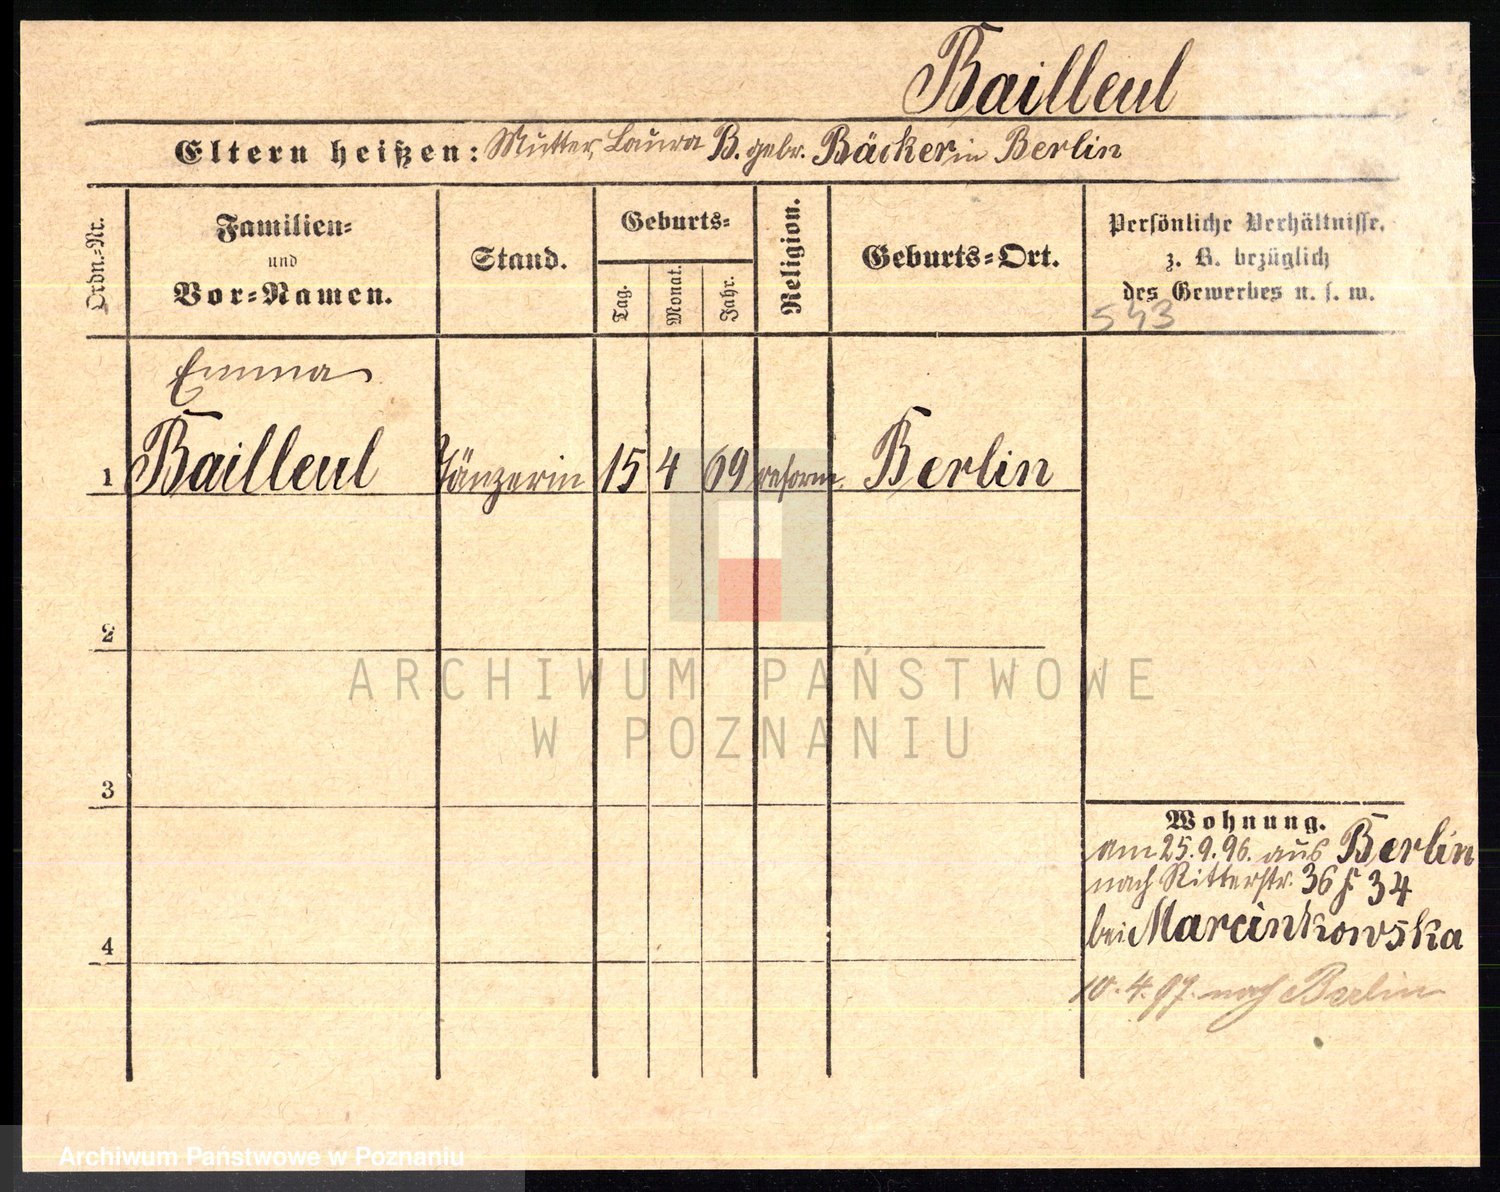 Bailleul
Eltern heißen: Mutter, Laura B. gebr. Bäcker in Berlin
Ordn.-Nr.
Familien-
und
Vor-Namen.
Stand.
Geburts-
Tag.
Monat.
Jahr.
Religion.
Geburts-Ort.
Persönliche Verhältnisse.
z. B. bezüglich
des Gewerbes u. s. w.
543
Emma
1 Bailleul Tänzerin 15 4 69 reform. Berlin
2
ARCHIWUM PAŃSTWOWE
W POZNANIU
3
Wohnung.
am 25.9.96. aus Berlin
nach Ritterstr. 36 34
bei Marcinkowska
4
10.4.97. nach Berlin
Archiwum Państwowe w Poznaniu